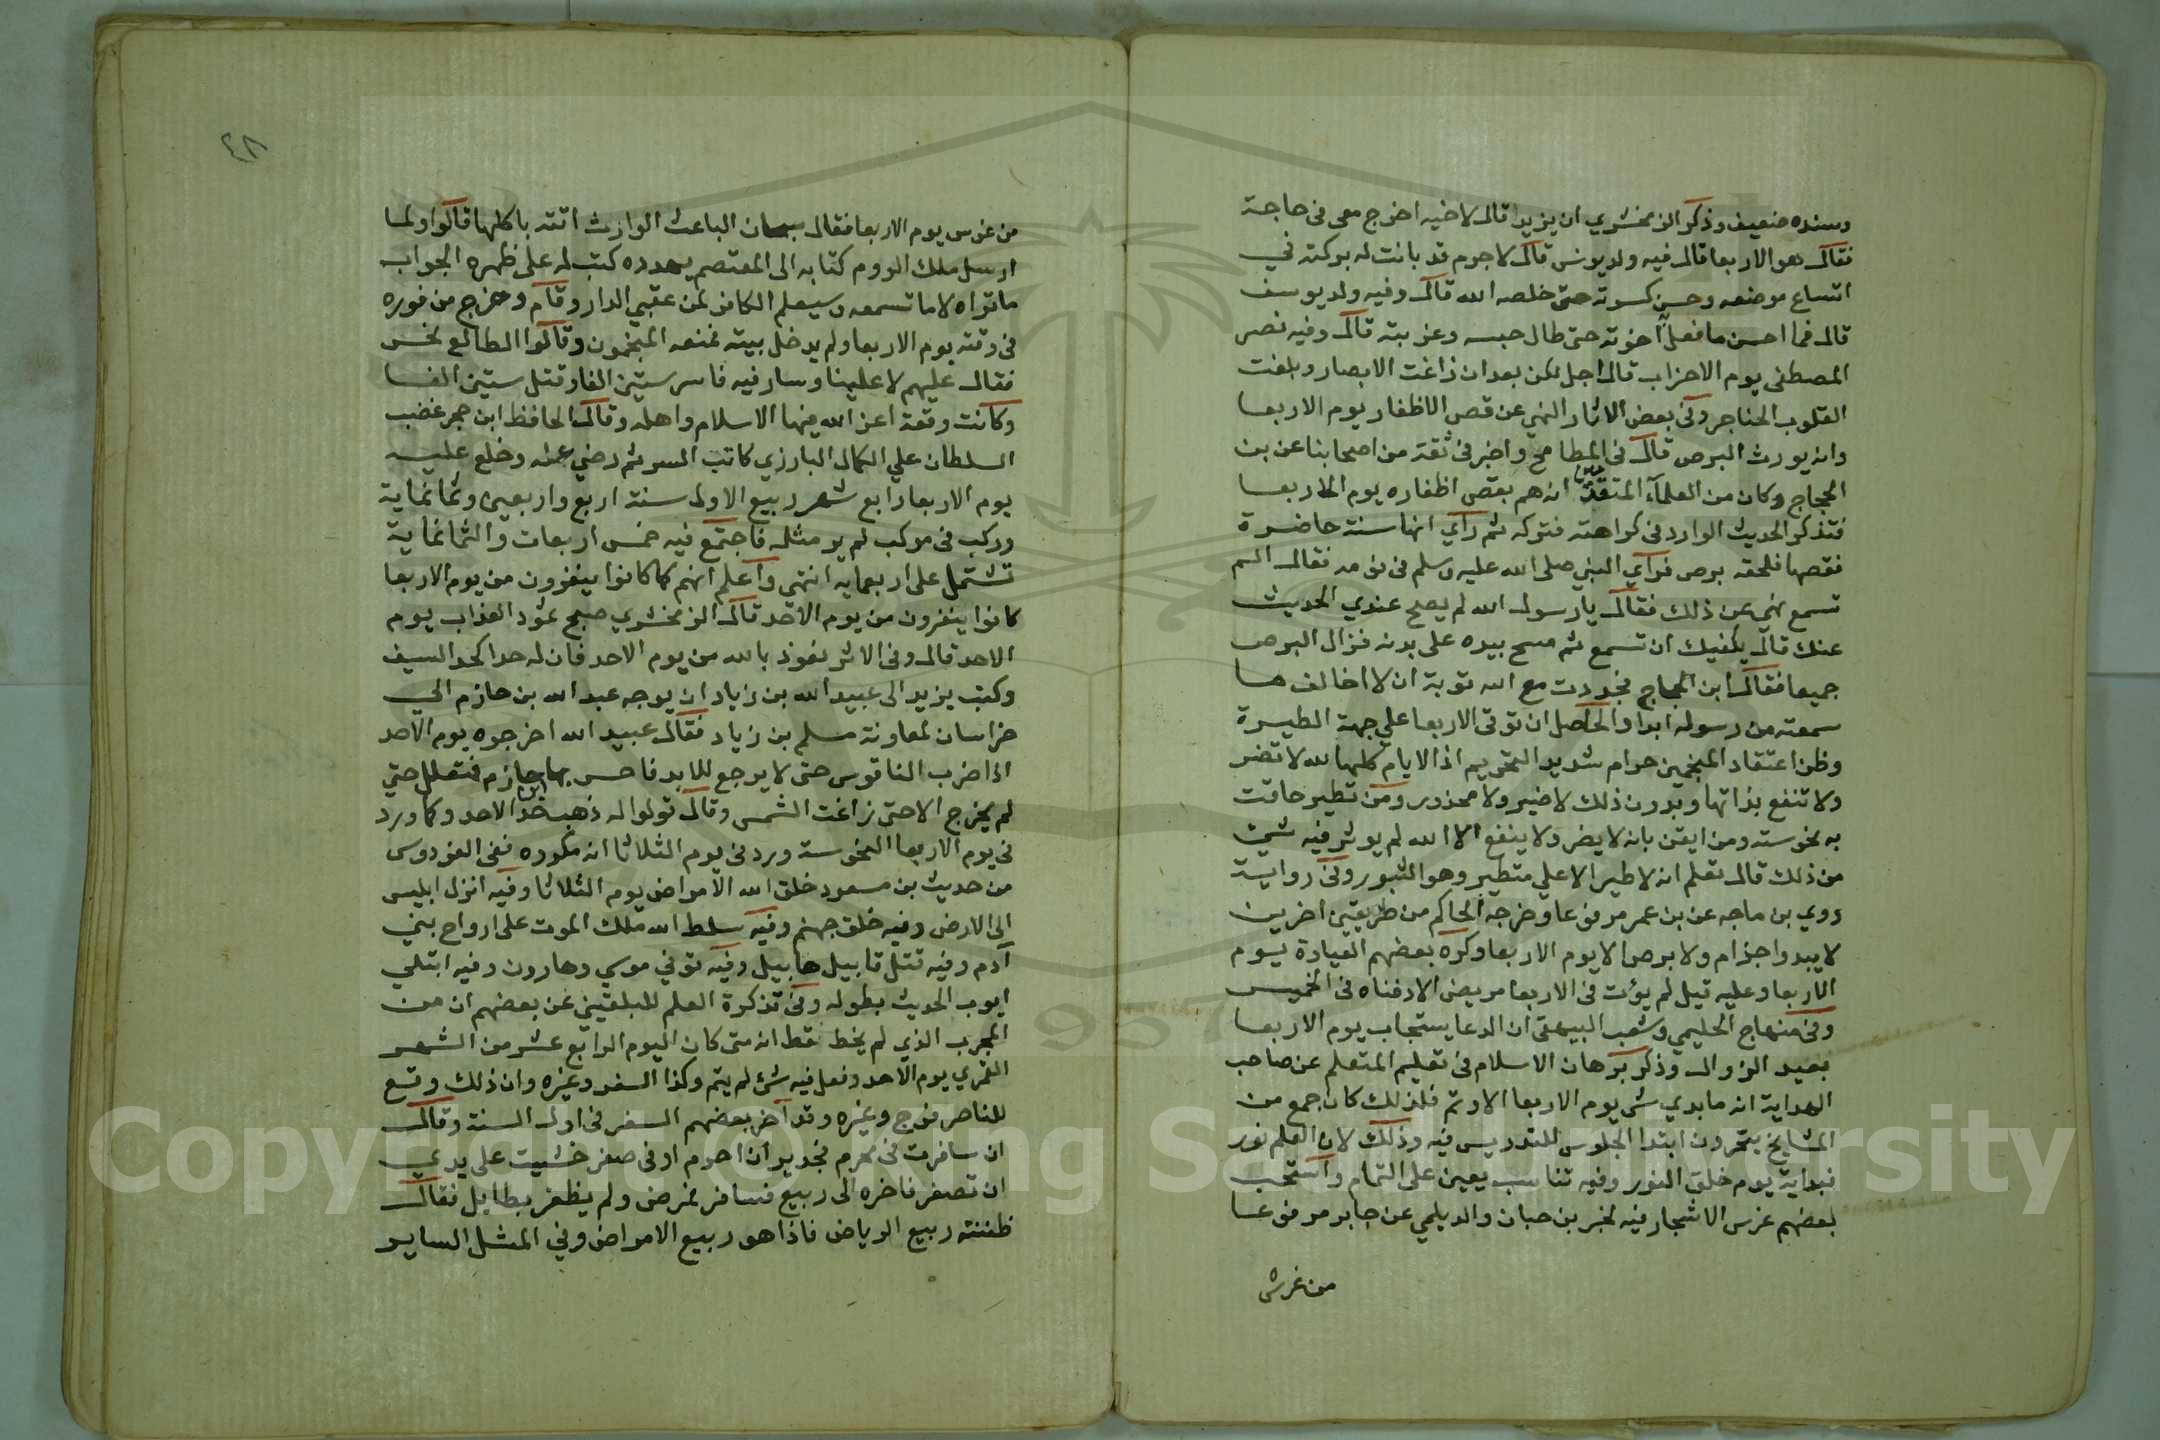 وسنده ضعيف وذكر الزمخشري ان يزيدا قال لاخيه اخرج معي في حاجة
فقال هو الاربعا قال فيه ولد يونس قال لا جرم قد بانت له بركته في
اتساع موضعه وحسن كسوته حتى خلصه الله قال وفيه ولد يوسف
قال فما احسن ما فعل اخوته حتى طال حبسه وغربته قال وفيه نصر
المصطفى يوم الاحزاب قال اجل لكن بعد ان زاغت الابصار وبلغت
القلوب الحناجر وفي بعض الاثار النهي عن قص الاظفار يوم الاربعا
وانه يورث البرص قال في المطامح واخبرني ثقة من اصحابنا عن بن
الحجاج وكان من العلماء المتقدمين انه هم بقص اظفاره يوم الاربعا
فتذكر الحديث الوارد في كراهته فتركه ثم راي انها سنة حاضرة
فقصها فلحقه برص فراي النبي صلى الله عليه وسلم في نومه فقال الم
تسمع نهي عن ذلك فقال يا رسول الله لم يصح عندي الحديث
عنك قال يكفيك ان تسمع ثم مسح بيده على بدنه فزال البرص
جميعا فقال ابن الحجاج فجددت مع الله توبة ان لا اخالف ما
سمعته من رسوله ابدا والحاصل ان توقي الاربعا على جهة الطيرة
وظن اعتقاد المنجمين حرام شديد التحريم اذ الايام كلها لله لا تضر
ولا تنفع بذاتها وبدون ذلك لا ضير ولا محذور ومن تطير حاقت
به نحوسته ومن ايقن بانه لا يضر ولا ينفع الا الله لم يوثر فيه شي
من ذلك قال تعلم انه لا طير الا على متطير وهو الثبور وفي رواية
روي بن ماجه عن بن عمر مرفوعا وخرجه الحاكم من طريقين اخرين
لا يبدوا جذام ولا برص الا يوم الاربعا وكره بعضهم العيادة يوم
الاربعا وعليه قيل لم يؤت في الاربعا مريض الا دفناه في الخميس
وفي منهاج الحليمي وشعب البيهقي ان الدعا يستجاب يوم الاربعا
بعيد الزوال وذكر برهان الاسلام في تعليم المتعلم عن صاحب
الهداية انه ما بدي شي يوم الاربعا الا وتم فلذلك كان جمع من
المشايخ يتحرون ابتدا الجلوس للتدريس فيه وذلك لان العلم نور
فبدايته يوم خلق النور وفيه تناسب يعين على التمام واستحب
بعضهم غرس الاشجار فيه لخبر بن حبان والديلمي عن جابر مرفوعا
من غرس
٤٨
من غرس يوم الاربعا فقال سبحان الباعث الوارث اتته باكلها قالوا ولما
ارسل ملك الروم كتابه الى المعتصم يهدده كتب له على ظهره الجواب
ما تراه لا ما تسمعه وسيعلم الكافر لمن عقبي الدار وقام وخرج من فوره
في وقته يوم الاربعا ولم يدخل بيته فمنعه المنجمون وقالوا الطالع نحس
فقال عليهم لا علينا وسار فيه فاسر ستين الفا وقتل ستين الفا
وكانت وقعة اعز الله فيها الاسلام واهله وقال الحافظ ابن حجر غضب
السلطان علي الكمال البارزي كاتب السر ثم رضي عنه وخلع عليه
يوم الاربعا رابع شهر ربيع الاول سنة اربع واربعين وثمانماية
وركب في موكب لم ير مثله فاجتمع فيه خمس اربعات والثمانماية
تشتمل على اربعمايه انتهى واعلم انهم كما كانوا ينفرون من يوم الاربعا
كانوا ينفرون من يوم الاحد قال الزمخشري صبح ثمود العذاب يوم
الاحد قال وفي الاثر نعوذ بالله من يوم الاحد فان له حدا كحد السيف
وكتب يزيد الى عبيد الله بن زياد ان يوجه عبد الله بن حازم الي
خراسان لمعاونة مسلم بن زياد فقال عبيد الله اخرجوه يوم الاحد
اذا ضرب الناقوس حتى لا يرجع للابد فاحس بها بن حازم فتعلل حتى
لم يخرج الا حتى زاغت الشمس وقال قولوا له ذهب حد الاحد وكما ورد
في يوم الاربعا النحوسة ورد في يوم الثلاثا انه مكروه ففي الفردوس
من حديث بن مسعود خلق الله الامراض يوم الثلاثا وفيه انزل ابليس
الى الارض وفيه خلق جهنم وفيه سلط الله ملك الموت على ارواح بني
آدم وفيه قتل قابيل هابيل وفيه توفي موسي وهارون وفيه ابتلي
ايوب الحديث بطوله وفي تذكرة العلم للبلقيني عن بعضهم ان من
المجرب الذي لم يخط قط انه متى كان اليوم الرابع عشر من الشهر
القمري يوم الاحد وفعل فيه شئ لم يتم وكذا السفر وغيره وان ذلك وقع
للناصر فرج وغيره وقد اخر بعضهم السفر في اول السنة وقال
ان سافرت في محرم فجدير ان احرم او في صفر خشيت على يدي
ان تصفر فاخره الى ربيع فسافر فمرض ولم يظفر بطايل فقال
ظننته ربيع الرياض فاذا هو ربيع الامراض وفي المثل الساير
Copyright © King Saud University
1957